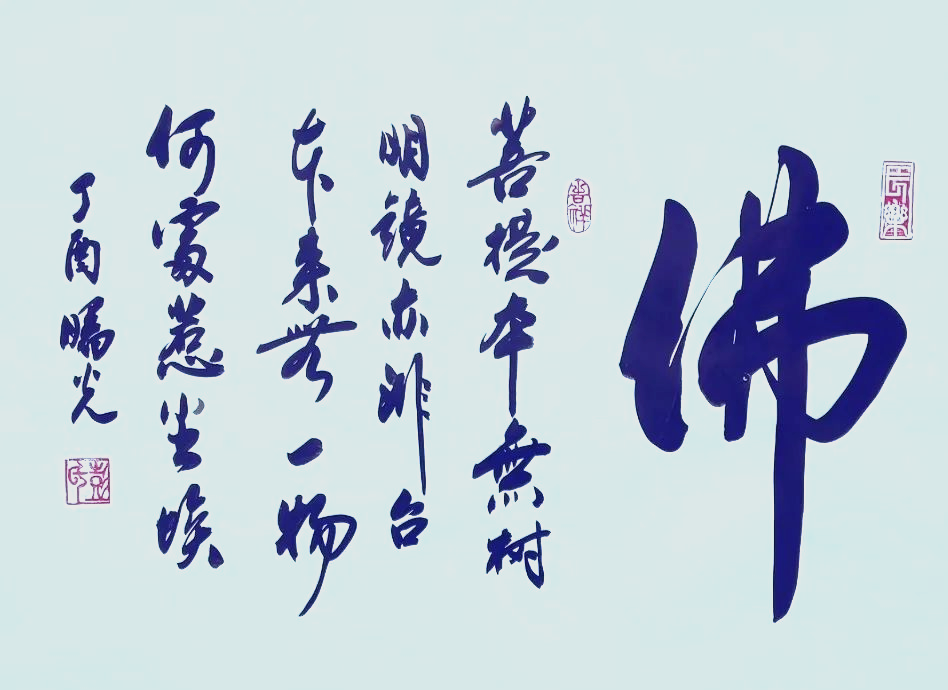 佛
菩提本無树
明镜亦非台
本来無一物
何處惹尘埃
丁酉 光
长樂
吉祥
彭氏